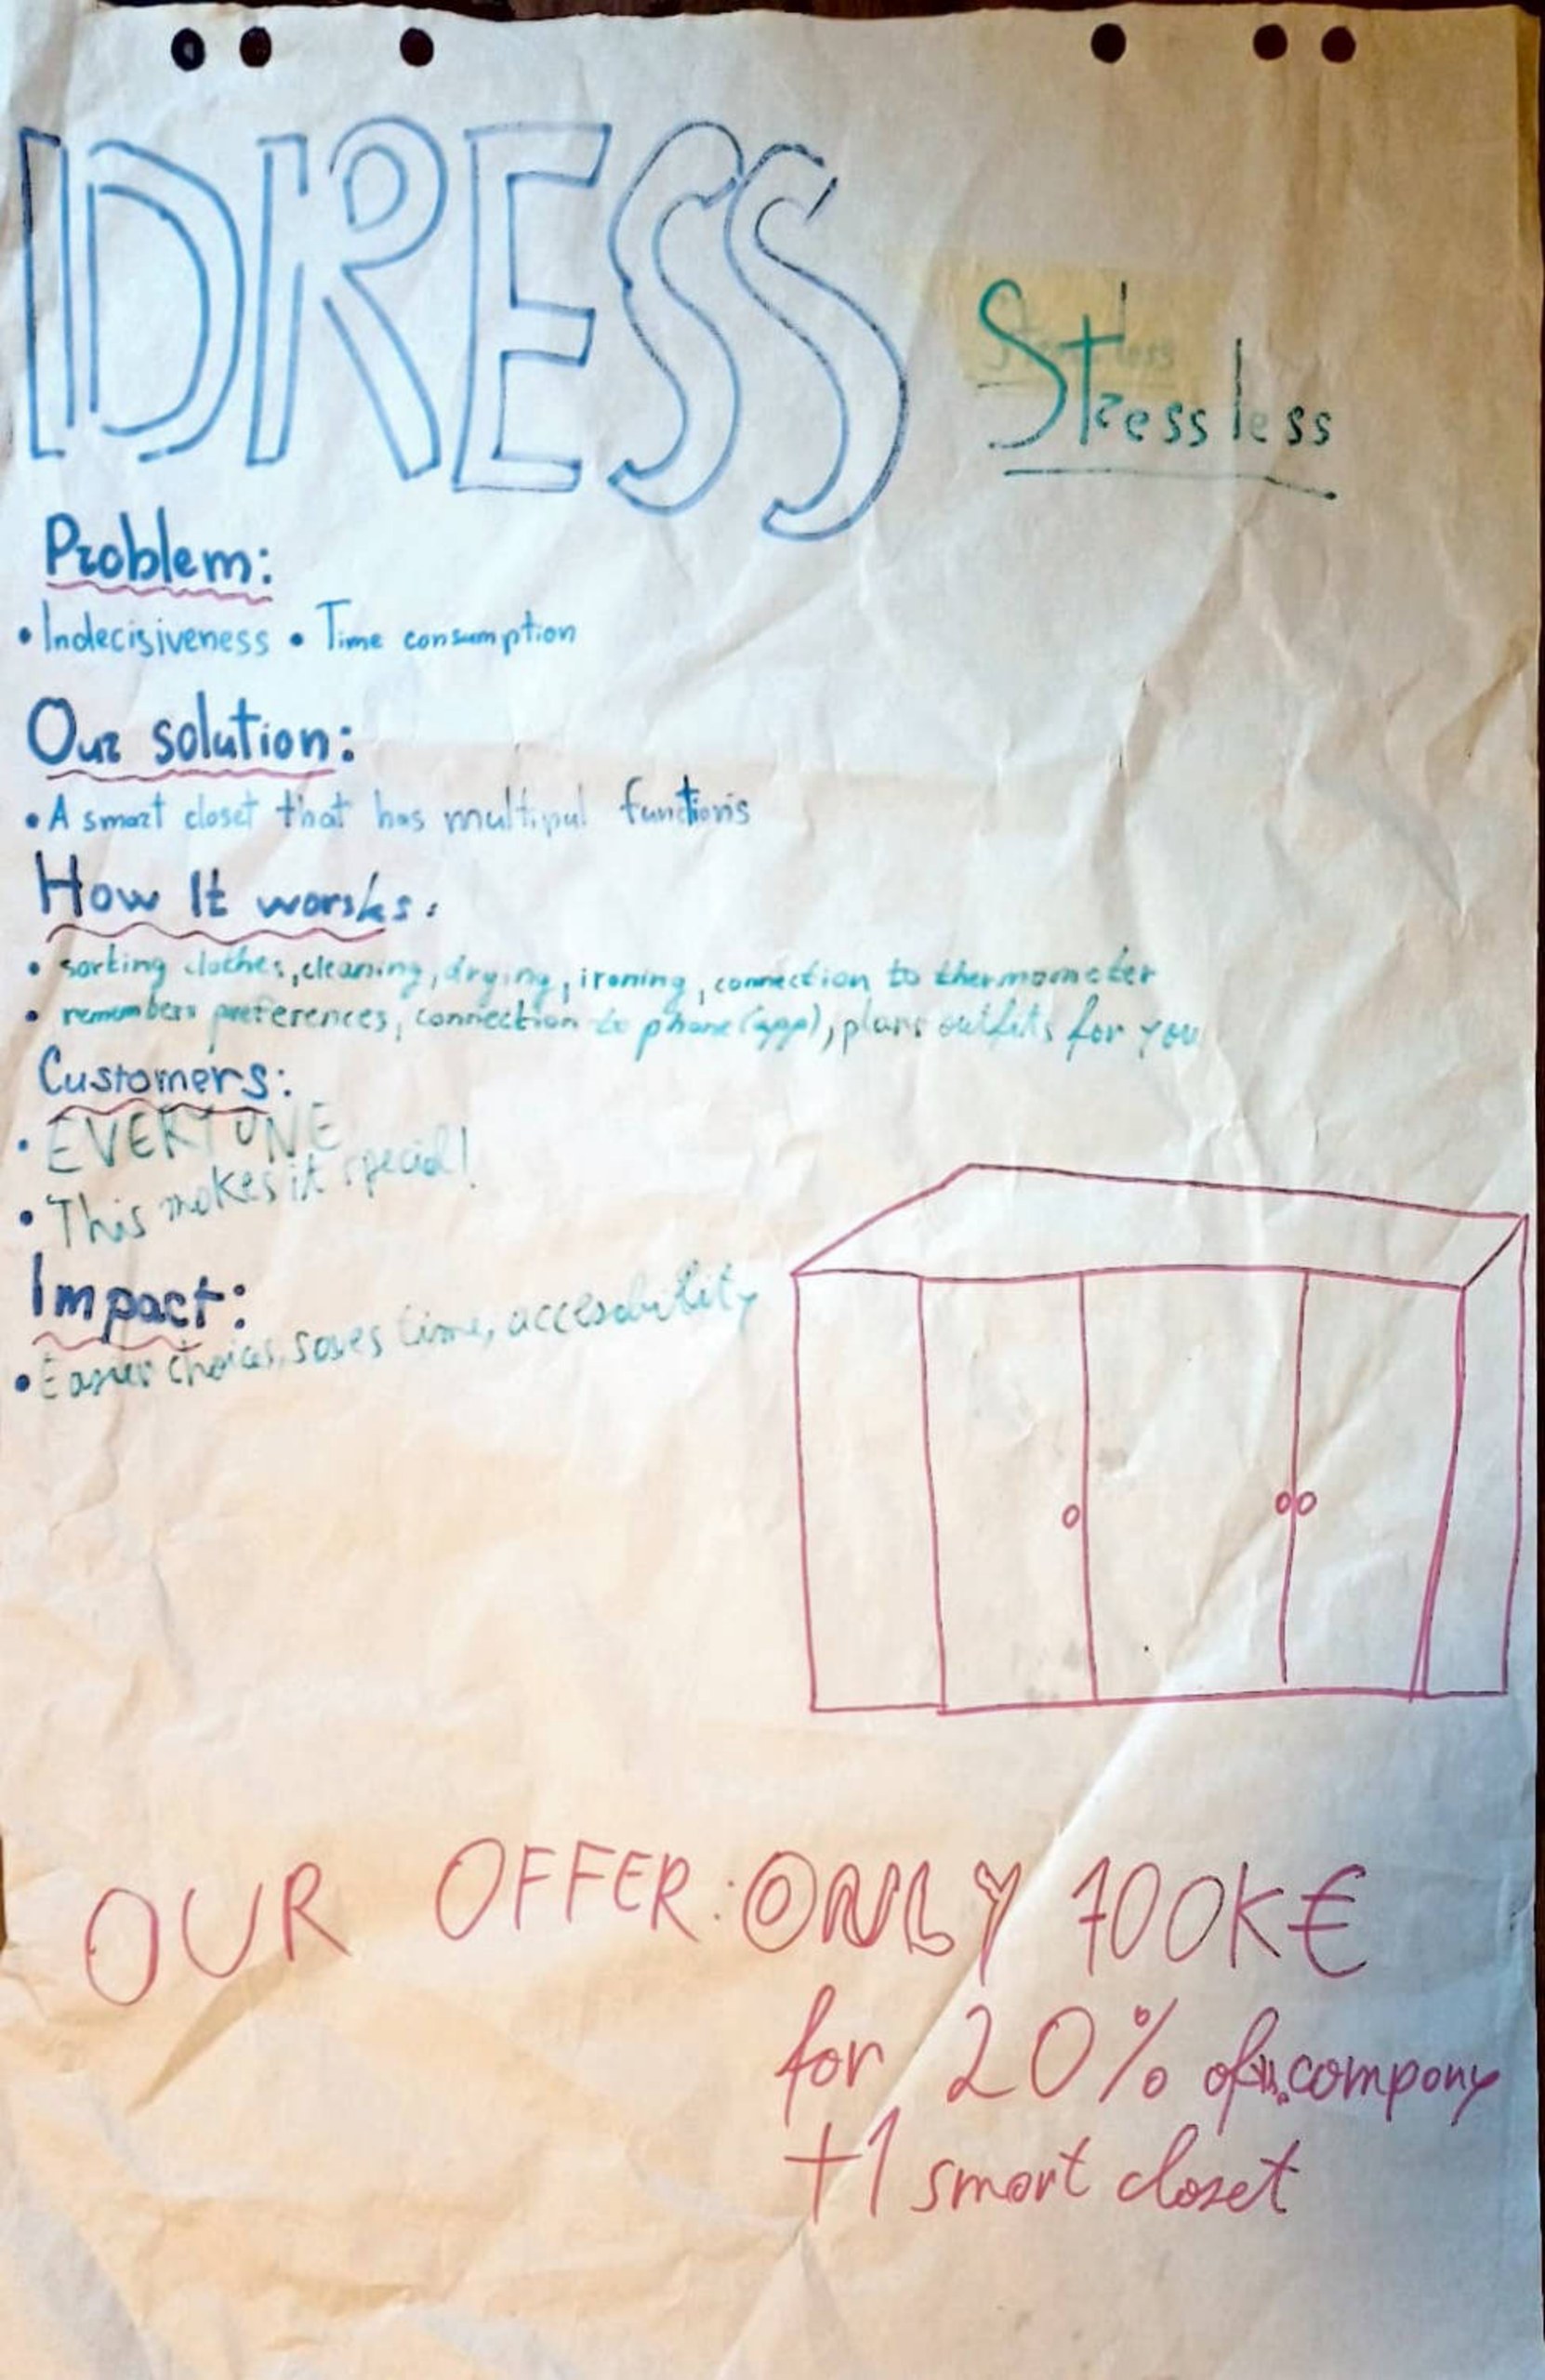 IDRESS
Stressless
Problem:
• Indecisiveness • Time consumption
Our solution:
• A smart closet that has multipul functions
How It works:
• sorting clothes, cleaning, drying, ironing, connection to thermometer
• remembers preferences, connection to phone (app), plans outfits for you
Customers:
• EVERYONE
• This makes it special!
Impact:
• Easier choices, saves time, accesability
OUR OFFER: ONLY 700K€
for 20% of company
+1 smart closet